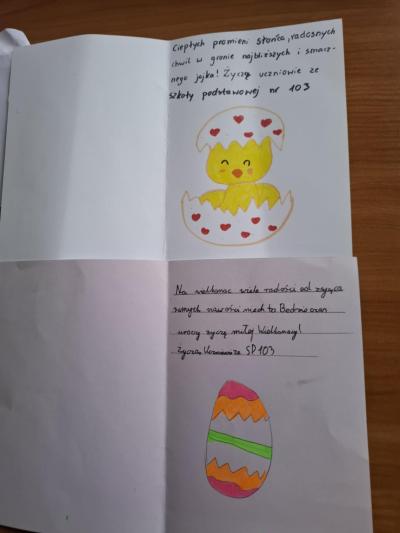 Ciepłych promieni słońca, radosnych
chwil w gronie najbliższych i smacz-
nego jajka! Życzą uczniowie ze
szkoły podstawowej nr 103
Na wielkanoc wiele radości od
samych niech to Będzie czas
uroczy życzę miłej Wielkanocy!
Życzą Uczniowie ze SP 103